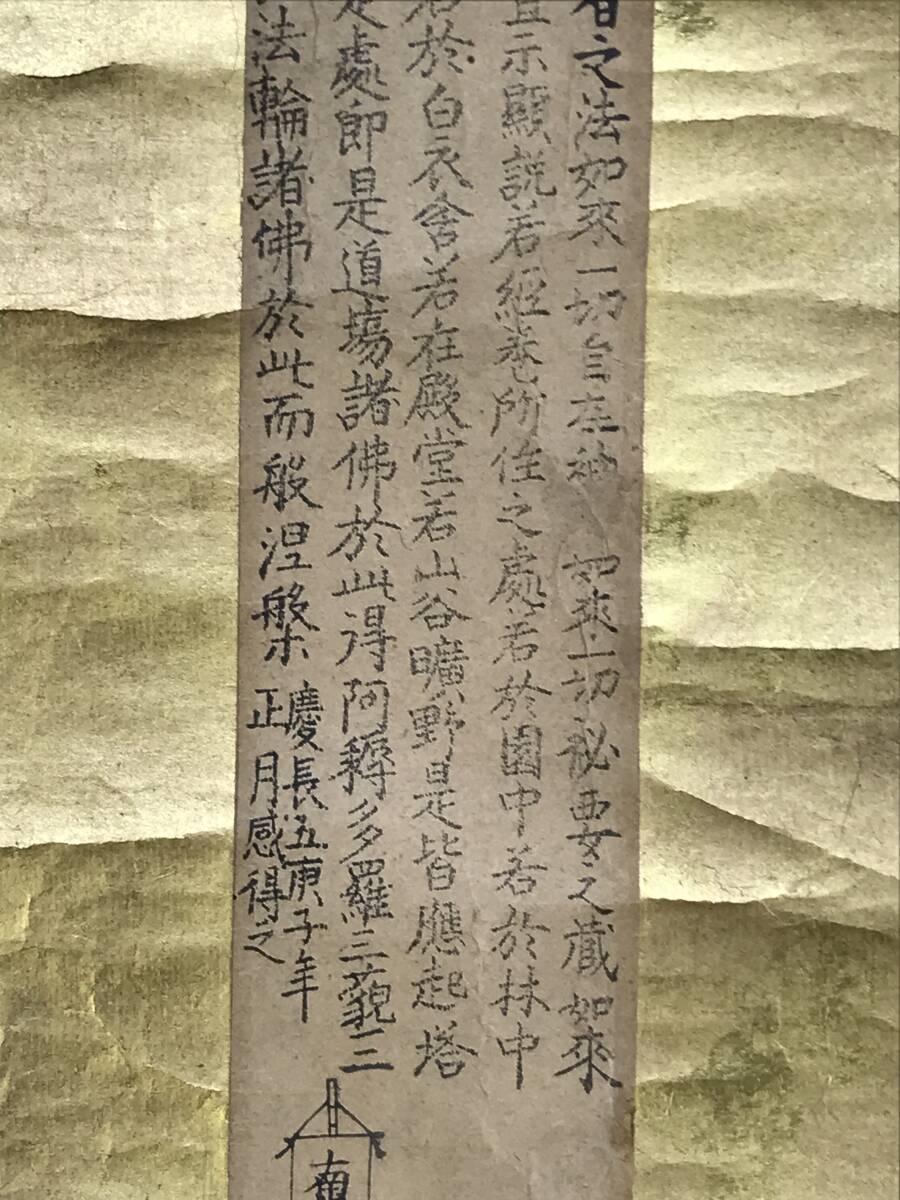 之法如來一切自在神 如來一切祕要之藏如來
宣示顯説若經卷所住之處若於園中若於林中
若於白衣舍若在殿堂若山谷曠野是皆應起塔
是處即是道場諸佛於此得阿耨多羅三藐三
法輪諸佛於此而般涅槃
慶長五庚子年
正月感得之
南